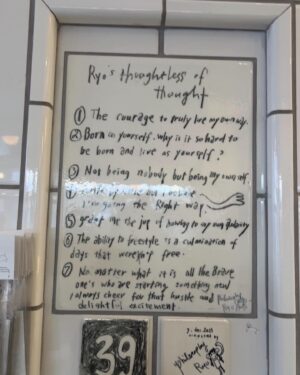 Ryo's thoughtless of
thought
① The courage to truly live my own way.
② Born in yourself. why is it so hard to
be born and live as yourself?
③ Not being nobody but being my own self.
④
I'm going the Right way.
⑤ grant me the joy of
⑥ The ability to freestyle is a culmination of
days that weren't free.
⑦ No matter what it is all the Brave
one's who are starting something new
I always cheer for that hustle and
delightful excitement.
39
Philosophy
Ryo